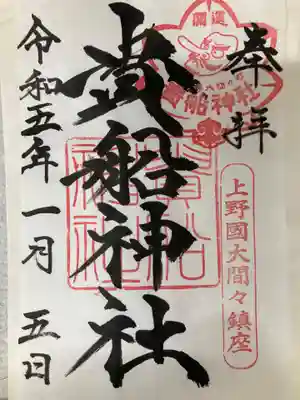 奉拝
開運
貴船神社
上野國大間々鎮座
貴船神社
貴船神社
令和五年一月五日